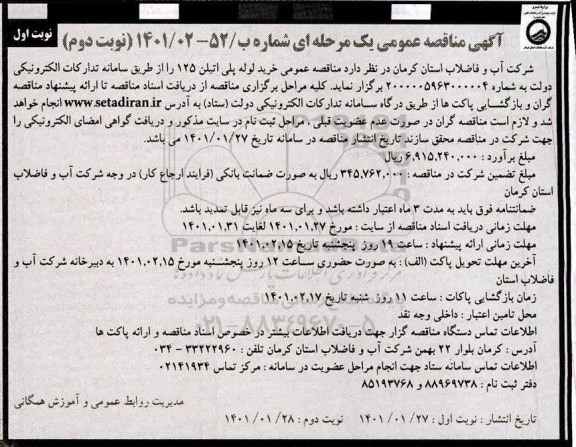 نوبت اول
آگهی مناقصه عمومی یک مرحله ای شماره ب/۵۲- ۱۴۰۱/۰۲ (نوبت دوم)
شرکت آب و فاضلاب استان کرمان در نظر دارد مناقصه عمومی خرید لوله پلی اتیلن ۱۲۵ را از طریق سامانه تدارکات الکترونیکی
دولت به شماره ۲۰۰۰۰۰۵۹۶۳۰۰۰۰۰۴ برگزار نماید. کلیه مراحل برگزاری مناقصه از دریافت اسناد مناقصه تا ارائه پیشنهاد مناقصه
گران و بازگشایی پاکت ها از طریق درگاه سامانه تدارکات الکترونیکی دولت (ستاد) به آدرس www.setadiran.ir انجام خواهد
شد و لازم است مناقصه گران در صورت عدم عضویت قبلی ، مراحل ثبت نام در سایت مذکور و دریافت گواهی امضای الکترونیکی را
جهت شرکت در مناقصه محقق سازند تاریخ انتشار مناقصه در سامانه تاریخ ۱۴۰۱/۰۱/۲۷ می باشد.
مبلغ برآورد : ۶,۹۱۵,۲۴۰,۰۰۰ ریال
مبلغ تضمین شرکت در مناقصه : ۳۴۵,۷۶۲,۰۰۰ ریال به صورت ضمانت بانکی (فرایند ارجاع کار) در وجه شرکت آب و فاضلاب
استان کرمان
ضمانتنامه فوق باید به مدت ۳ ماه اعتبار داشته باشد و برای سه ماه نیز قابل تمدید باشد.
مهلت زمانی دریافت اسناد مناقصه از سایت : مورخ ۱۴۰۱.۰۱.۲۷ لغایت ۱۴۰۱.۰۱.۳۱
مهلت زمانی ارائه پیشنهاد : ساعت ۱۹ روز پنجشنبه تاریخ ۱۴۰۱.۰۲.۱۵
آخرین مهلت تحویل پاکت (الف) : به صورت حضوری ساعت ۱۲ روز پنجشنبه مورخ ۱۴۰۱.۰۲.۱۵ به دبیرخانه شرکت آب و
فاضلاب استان
زمان بازگشایی پاکات : ساعت ۱۱ روز شنبه تاریخ ۱۴۰۱.۰۲.۱۷
محل تامین اعتبار : داخلی وجه نقد
اطلاعات تماس دستگاه مناقصه گزار جهت دریافت اطلاعات بیشتر در خصوص اسناد مناقصه و ارائه پاکت ها
آدرس : کرمان بلوار ۲۲ بهمن شرکت آب و فاضلاب استان کرمان تلفن : ۳۳۲۲۲۹۶۰ - ۰۳۴
اطلاعات تماس سامانه ستاد جهت انجام مراحل عضویت در سامانه : مرکز تماس ۰۲۱۴۱۹۳۴
دفتر ثبت نام : ۸۸۹۶۹۷۳۸ و ۸۵۱۹۳۷۶۸
مدیریت روابط عمومی و آموزش همگانی
تاریخ انتشار : نوبت اول : ۲۷ /۰۱ /۱۴۰۱ نوبت دوم : ۲۸ /۰۱ /۱۴۰۱